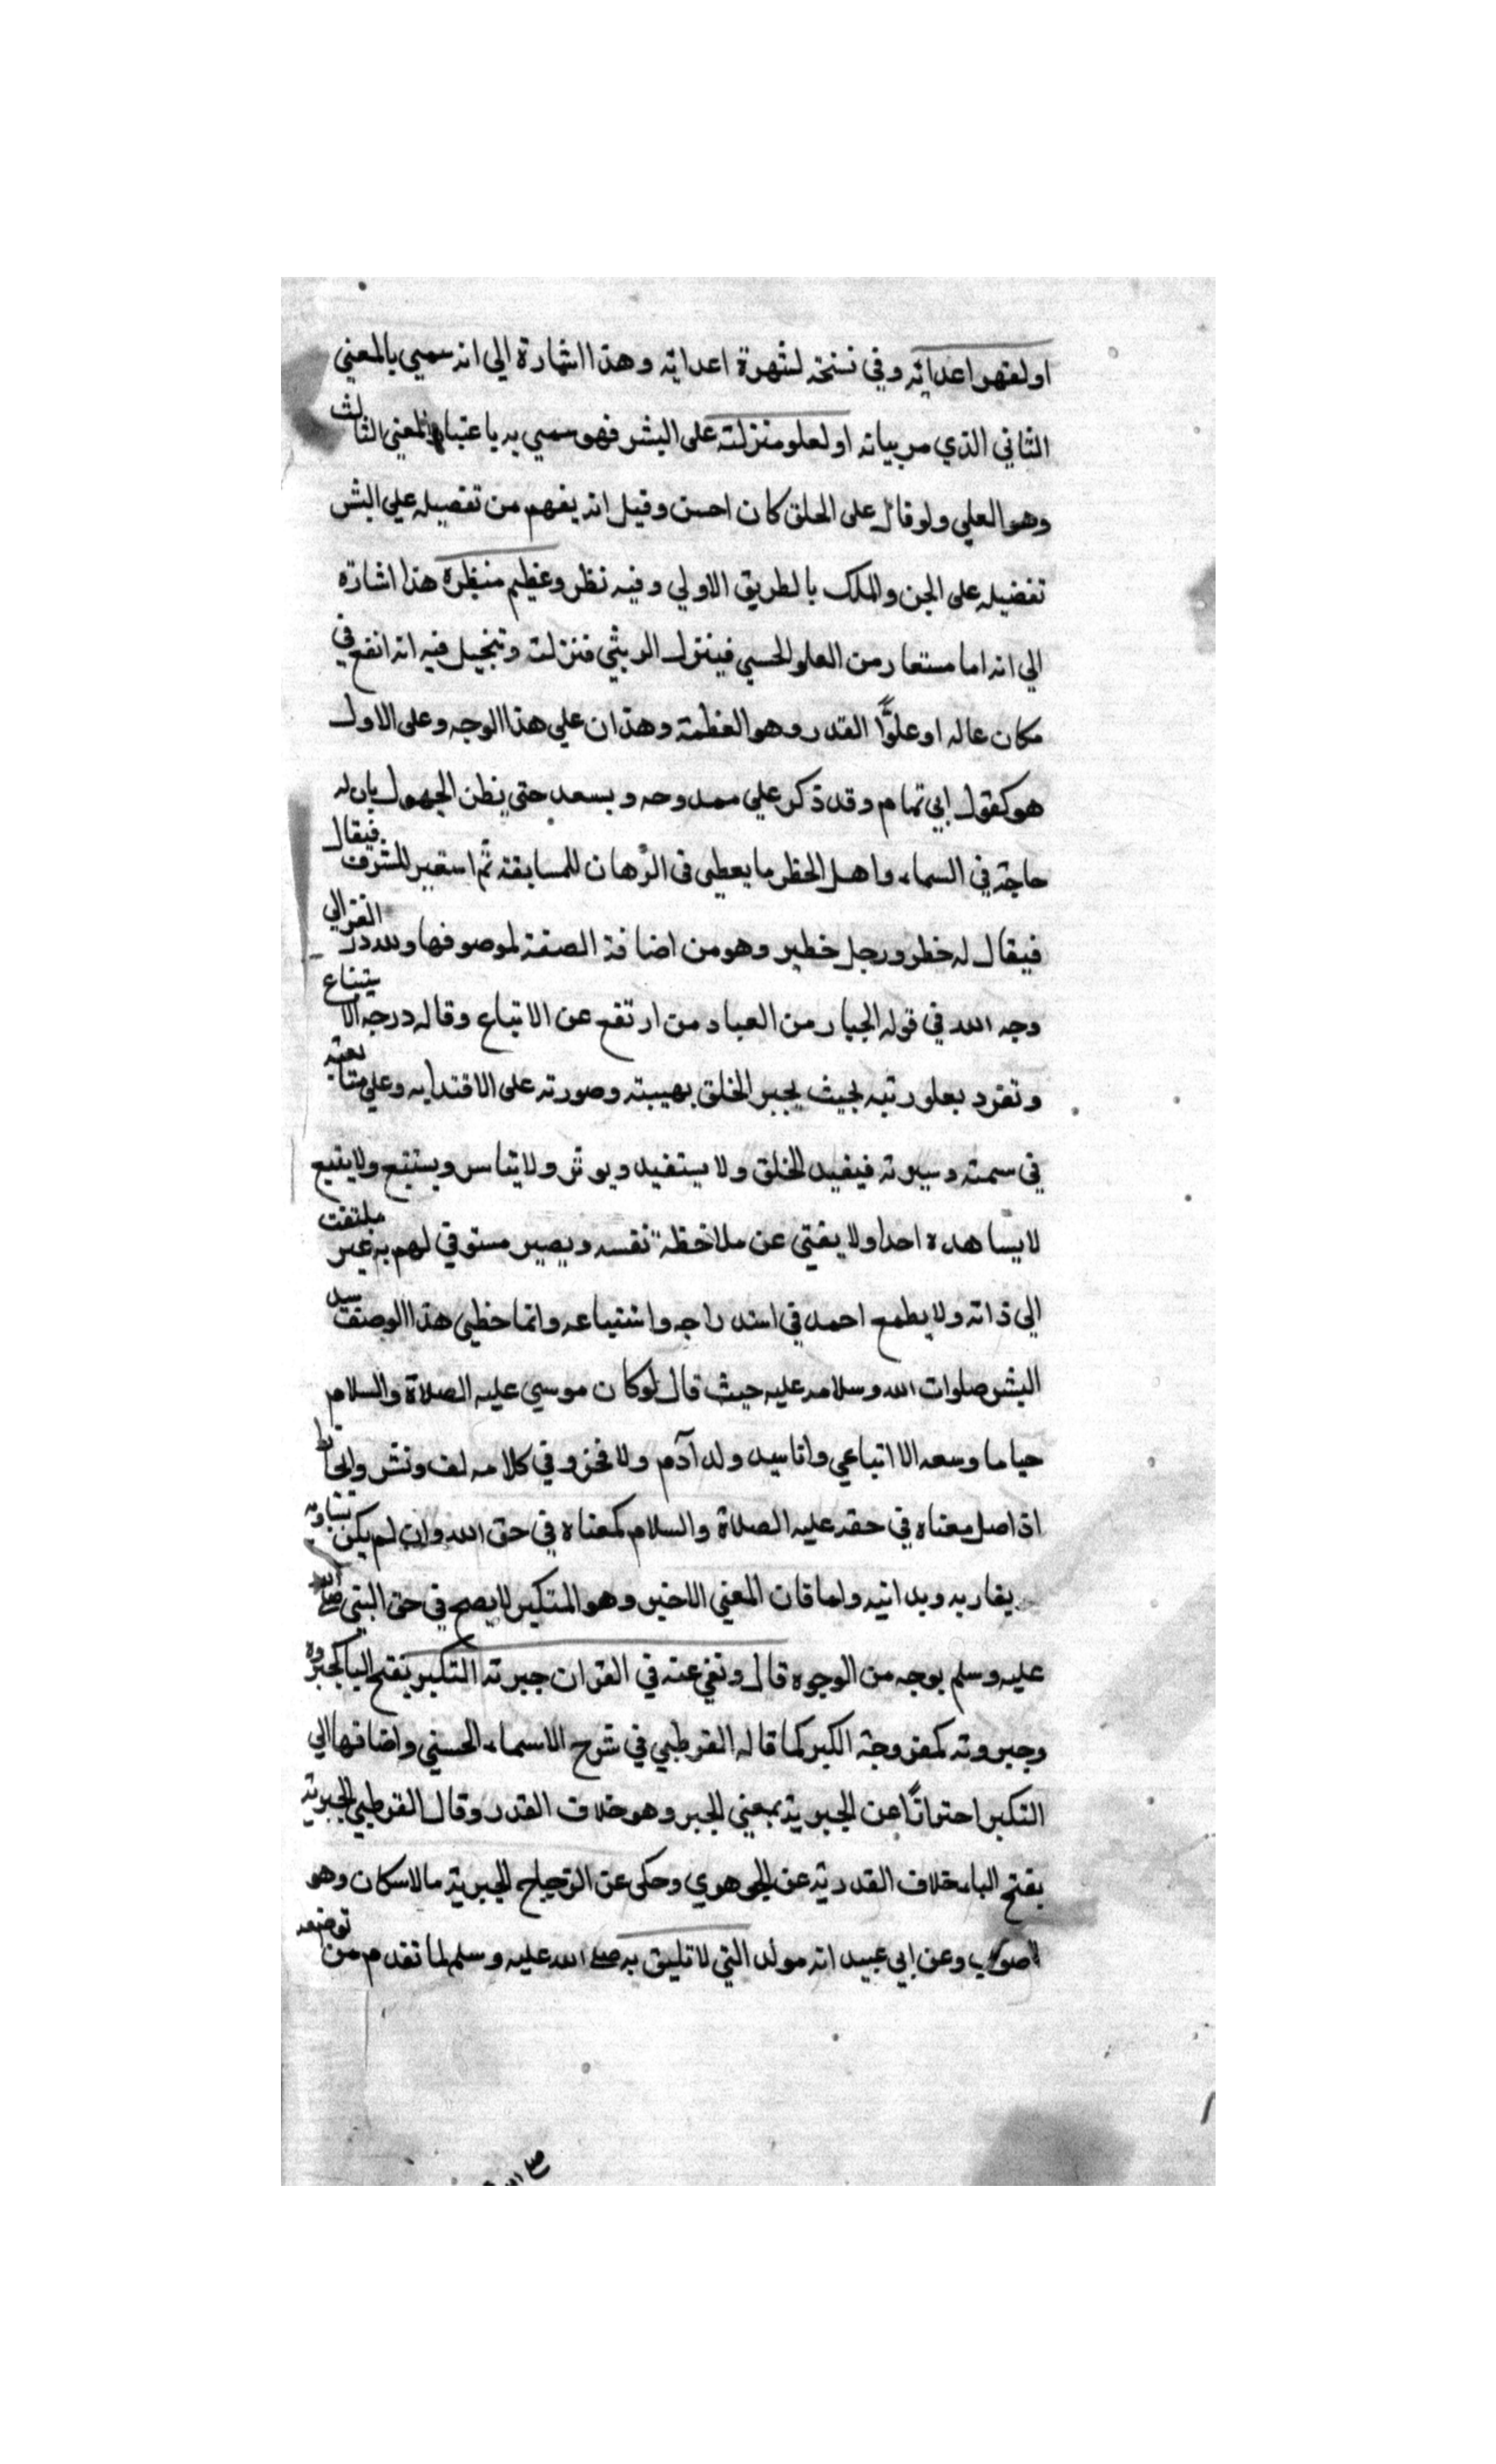 او لقهر اعدائه وفي نسخة لشهرة اعدائه وهذا اشارة الي انه سمي بالمعني
الثاني الذي مر بيانه او لعلو منزلته على البشر فهو سمي به باعتبار المعني الثالث
وهو العلي ولو قال على الخلق كان احسن وقيل انه يفهم من تفصيله علي البشر
تفضيله على الجن والملك بالطريق الاولي وفيه نظر وعظيم منظرة هذا اشارة
الي انه اما مستعار من العلو الحسي فينزل منزلته وتخييل فيه انه انفع في
مكان عاله او علوًّا القدر وهو العظمة وهذان علي هذا الوجه وعلى الاول
هو كقول ابي تمام وقد ذكر علي ممدوحه ويسعد حتى يظن الجهول بان له
حاجة في السماء واهل الخطر ما يعطى في الرهان للمسابقة ثم استعير للشرف فيقال
فيقال له خطر ورجل خطير وهو من اضافة الصفة لموصوفها ولله در الغزالي
وجه الله في قوله الجبار من العباد من ارتفع عن الاتباع وقاله درجه الا يتباع
وتفرد بعلو رتبه بحيث يجبر الخلق بهيبته وصورته على الاقتدا به وعلي متابعته
في سمته وسيرته فيفيد الخلق ولا يستفيد ويوثر ولا يتاسر ويستتبع ولا يتبع
لا يساهده احدا ولا يفتي عن ملاحظة نفسه ويصير مستوفي لهم به غير ملتفت
الي ذاته ولا يطمع احمد في استدراجه واستتباعه وانما حظي هذا الوصف سيد
البشر صلوات الله وسلامه عليه حيث قال لو كان موسي عليه الصلاة والسلام
حيا ما وسعه الا اتباعي وانا سيد ولد آدم ولا فخر وفي كلامه لف ونشر
اذ اصل معناه في حقه عليه الصلاة والسلام كمعناه في حق الله وان لم يكن يساويه
يقاربه ويدانيه ولما قان المعني الاخير وهو المتكبر لا يصح في حق النبي صلى الله
عليه وسلم بوجه من الوجوه قال ونفي عنه في القران جبرته التكبر بفتح البا كجبروة
وجبروته كمفزوجة الكبر كما قاله القرطبي في شرح الاسماء الحسني واضافها الي
التكبر احترازًا عن الجبرية بمعني الجبر وهو خلاف القدر وقال القرطبي الجبرية
بفتح الباء خلاف القدرية عن الجوهري وحكى عن الزجاج الجبرية مالاسكان وهو
اصوب وعن ابي عبيد انه مولد التي لا تليق به صلى الله عليه وسلم لما تقدم من توضعه